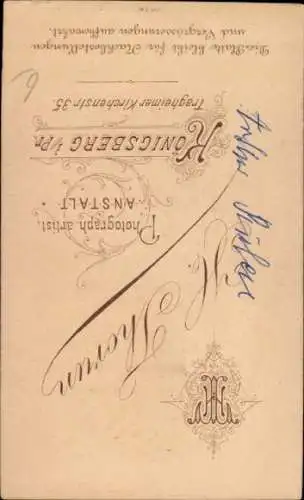 H. Thorun
Photograph. artist.
ANSTALT
KÖNIGSBERG i/Pr.
Tragheimer Kirchenstr. 35.
Die Platte bleibt für Nachbestellungen
und Vergrösserungen aufbewahrt.
6